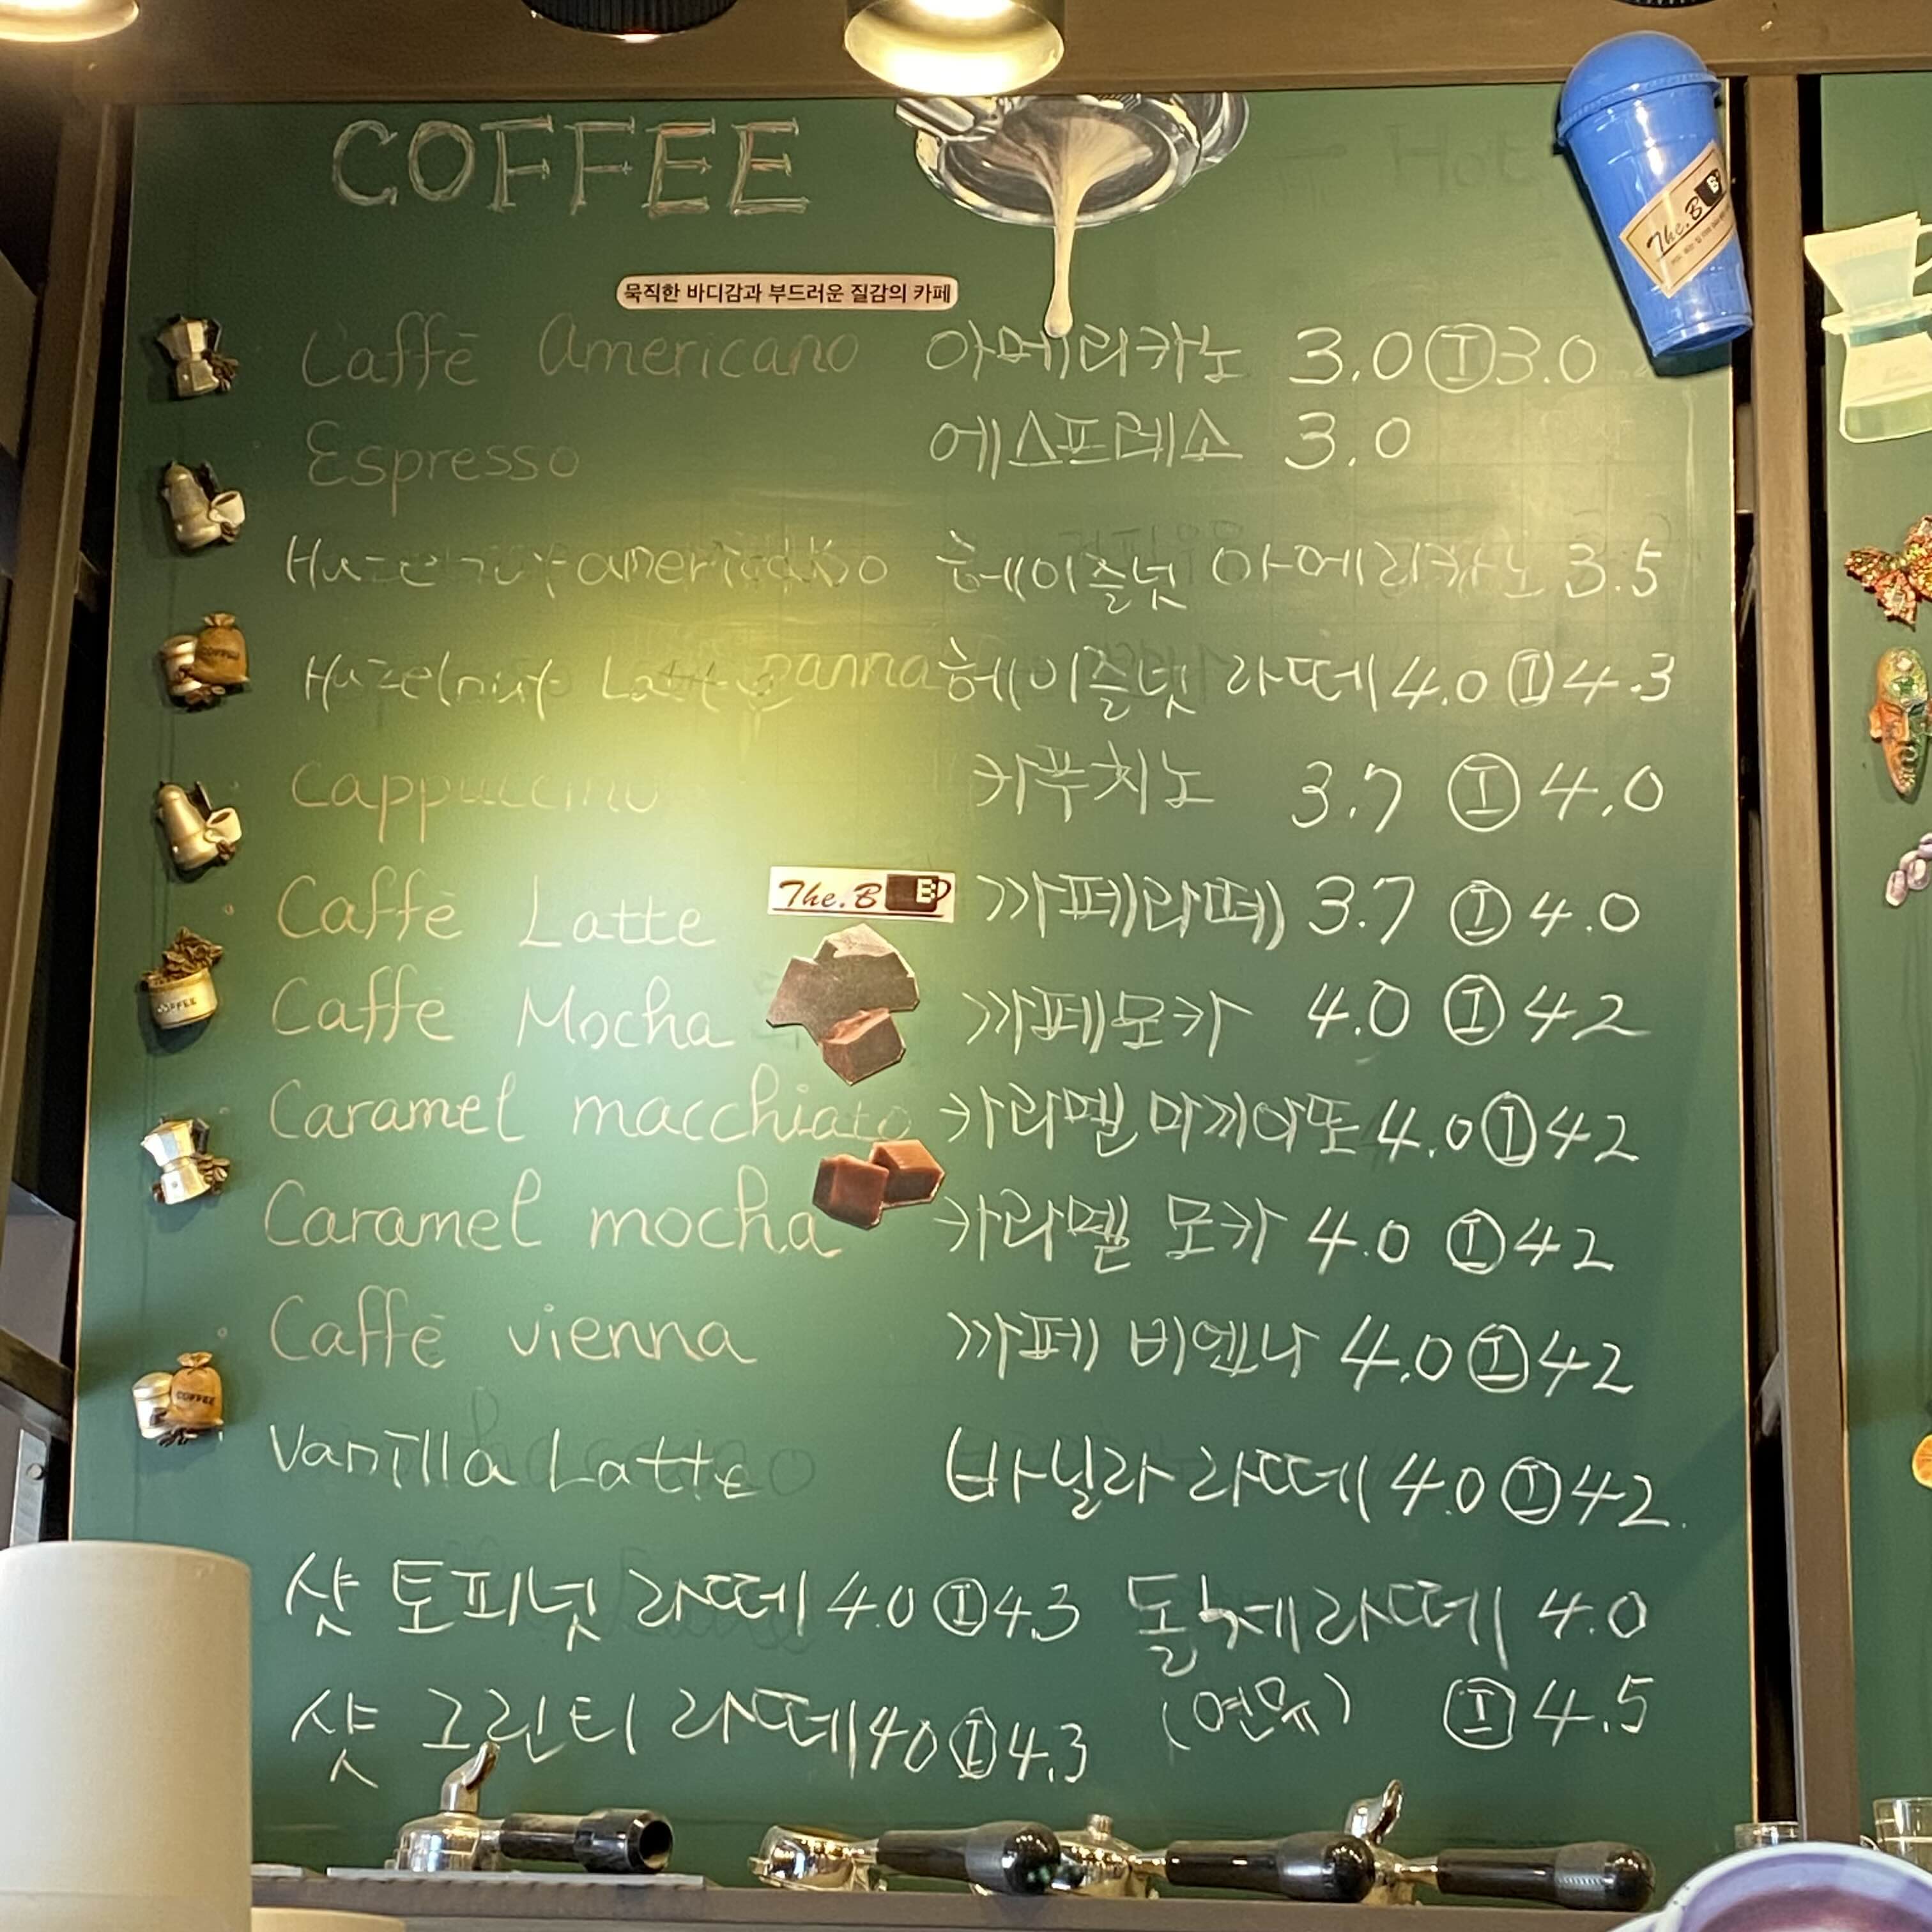 COFFEE
묵직한 바디감과 부드러운 질감의 카페
Caffē Americano 아메리카노 3.0 Ⓘ 3.0
Espresso 에스프레소 3.0
americano 헤이즐넛 아메리카노 3.5
Hazelnut Latte 헤이즐넛 라떼 4.0 Ⓘ 4.3
Cappuccino 카푸치노 3.7 Ⓘ 4.0
Caffē Latte The.B 까페라떼 3.7 Ⓘ 4.0
Caffē Mocha 까페모카 4.0 Ⓘ 42
Caramel macchiato 카라멜 마끼아또 4.0 Ⓘ 42
Caramel mocha 카라멜 모카 4.0 Ⓘ 42
Caffē vienna 까페 비엔나 4.0 Ⓘ 42
Vanilla Latte 바닐라 라떼 4.0 Ⓘ 42.
샷 토피넛 라떼 4.0 Ⓘ 4.3 돌체라떼 4.0
샷 그린티 라떼 40 Ⓘ 4.3 (연유) Ⓘ 4.5
The.B
COFFEE
COFFEE
COFFEE